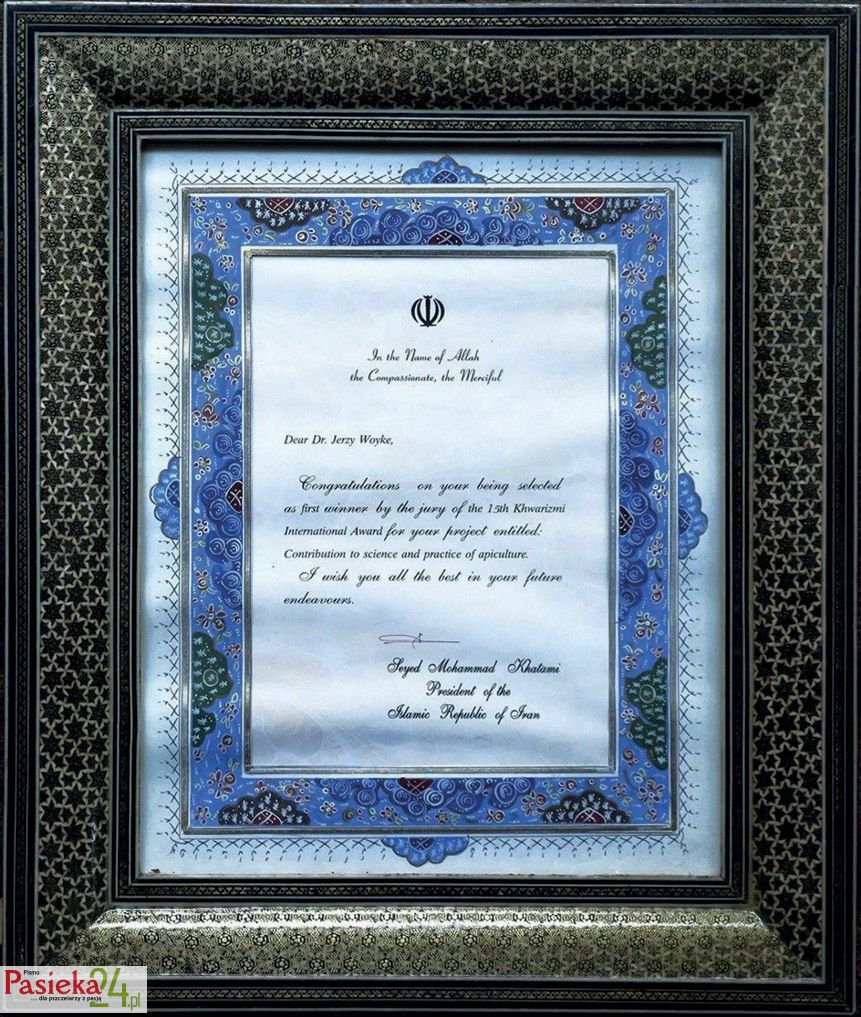 In the Name of Allah
the Compassionate, the Merciful
Dear Dr. Jerzy Woyke,
Congratulations on your being selected
as first winner by the jury of the 15th Khwarizmi
International Award for your project entitled:
Contribution to science and practice of apiculture.
I wish you all the best in your future
endeavours.
Seyed Mohammad Khatami
President of the
Islamic Republic of Iran
Pismo
Pasieka24.pl
... dla pszczelarzy z pasją